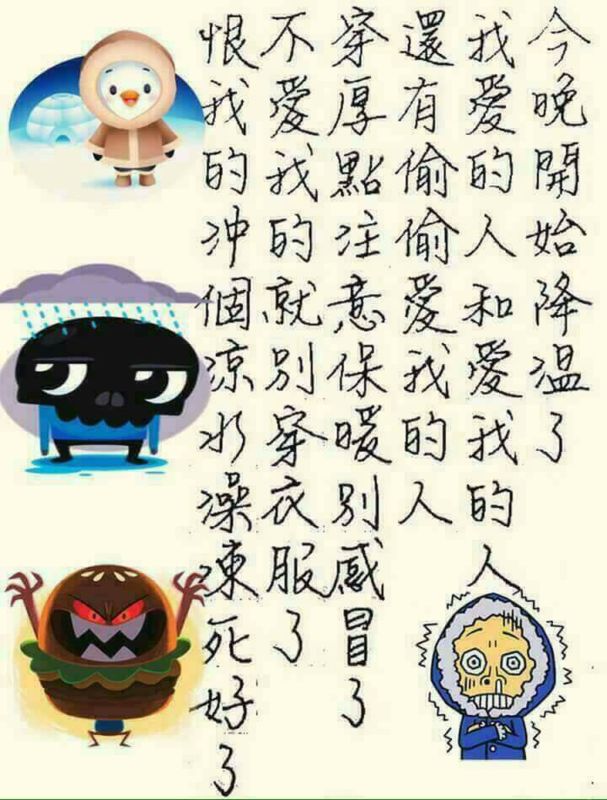 今晚開始降溫了
我愛的人和愛我的人
還有偷偷愛我的人
穿厚點注意保暖別感冒了
不愛我的就別穿衣服了
恨我的冲個凉水澡凍死好了